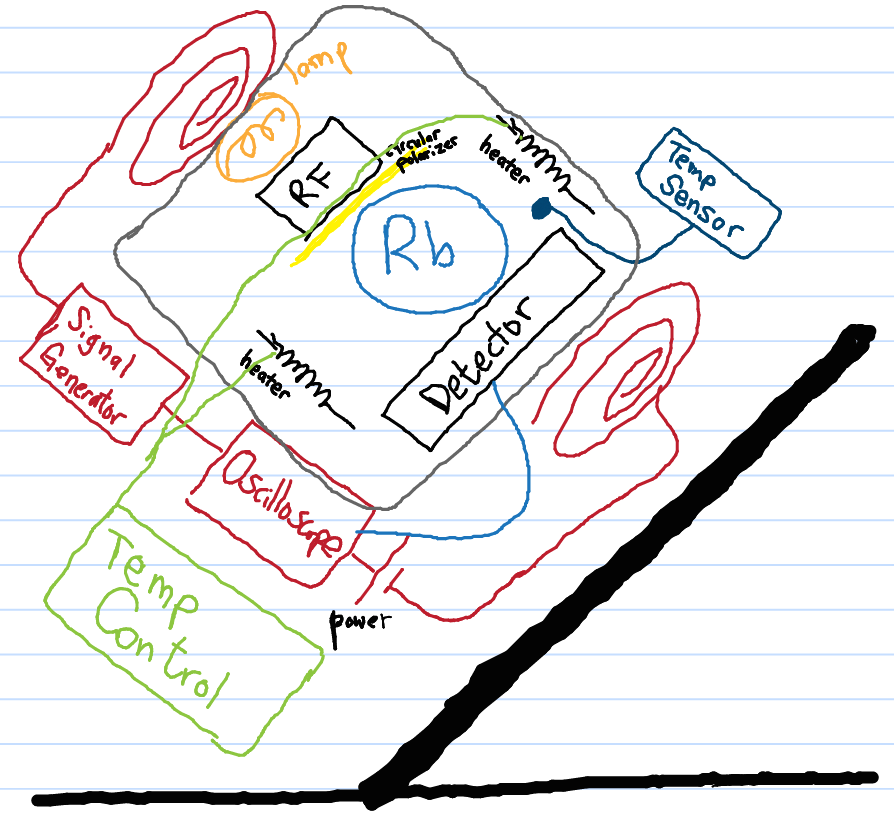 lamp
RF
circular
polarizer
heater
Temp
Sensor
Rb
Signal
Generator
heater
Detector
Oscilloscope
power
Temp
Control